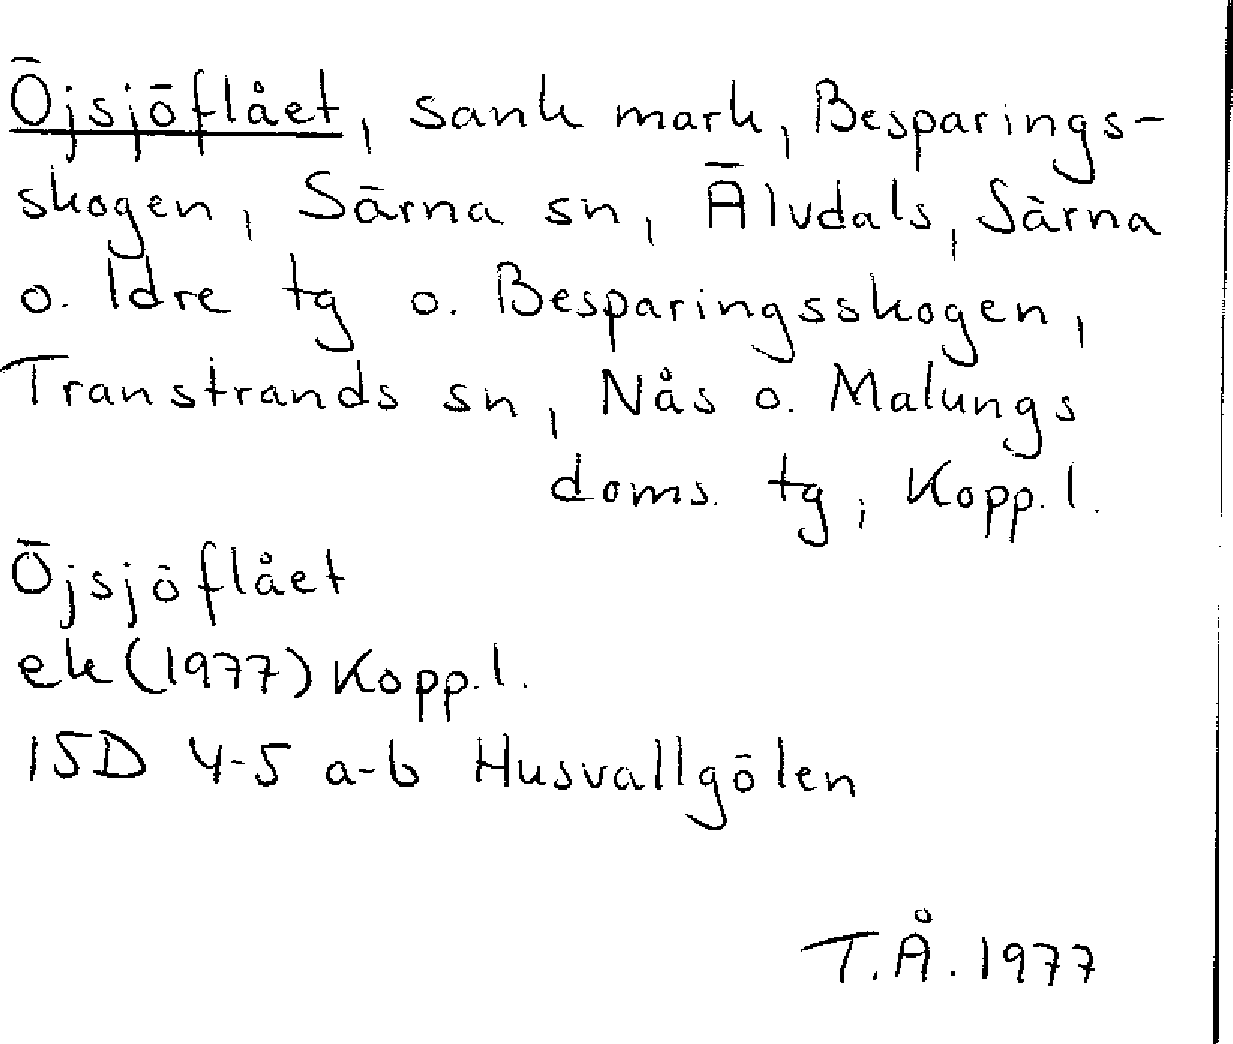 Öjsjöflået, sank mark, Besparings-
skogen, Särna sn, Älvdals, Särna
o. Idre tg o. Besparingsskogen,
Transtrands sn, Nås o. Malungs
doms. tg, Kopp. l.
Öjsjöflået
ek (1977) Kopp. l.
15D 4-5 a-b Husvallgölen
T.Å. 1977